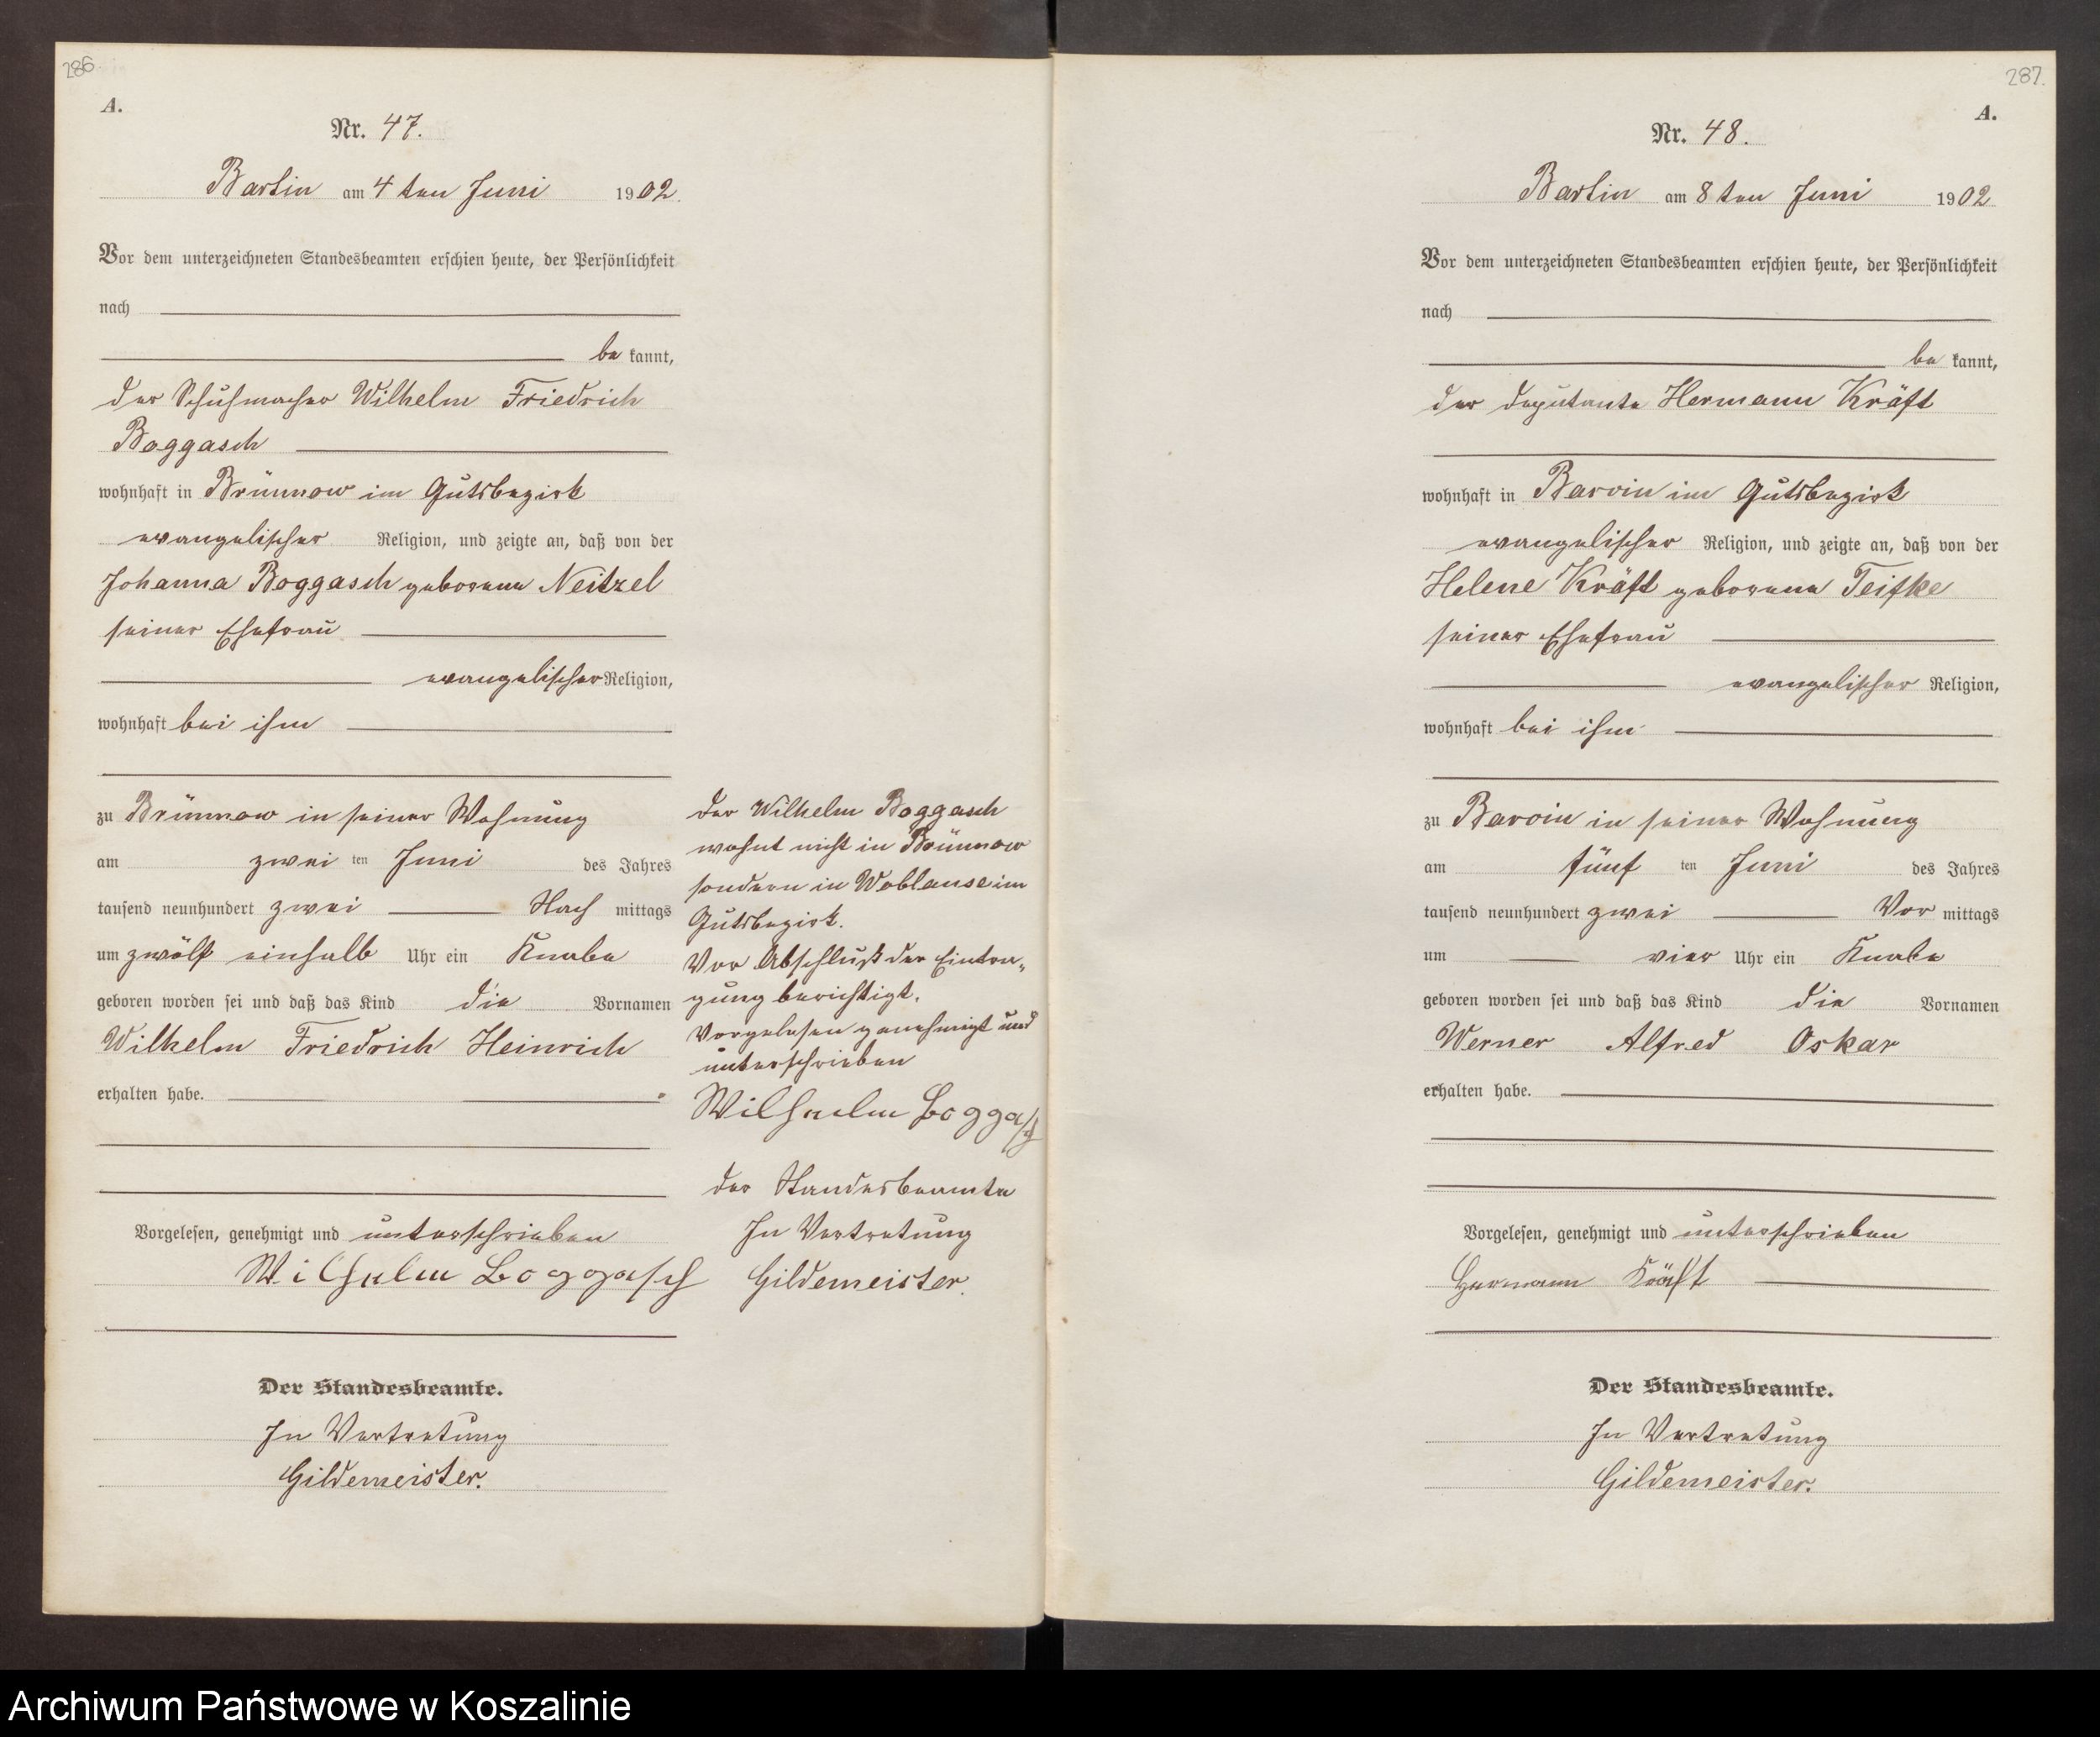 286.
A.
Nr. 47.
Bartin am 4 ten Juni 1902.
Vor dem unterzeichneten Standesbeamten erschien heute, der Persönlichkeit
nach
be kannt,
der Schuhmacher Wilhelm Friedrich
Boggasch
wohnhaft in Brünnow im Gutsbezirk
evangelischer Religion, und zeigte an, daß von der
Johanna Boggasch geborene Neitzel
seiner Ehefrau
evangelischer Religion,
wohnhaft bei ihm
zu Brünnow in seiner Wohnung
am zwei ten Juni des Jahres
tausend neunhundert zwei Nach mittags
um zwölf einhalb Uhr ein Knabe
geboren worden sei und daß das Kind die Vornamen
Wilhelm Friedrich Heinrich
erhalten habe.
Vorgelesen, genehmigt und unterschrieben
Wilhelm Boggasch
Der Standesbeamte.
In Vertretung
Gildemeister.
der Wilhelm Boggasch
wohnt nicht in Brünnow
sondern in Woblanse im
Gutsbezirk.
Vor Abschluß der Eintra„
gung berichtigt.
Vorgelesen genehmigt und
unterschrieben
Wilhelm Boggasch
der Standesbeamte
In Vertretung
Gildemeister.
287.
A.
Nr. 48.
Bartin am 8 ten Juni 1902
Vor dem unterzeichneten Standesbeamten erschien heute, der Persönlichkeit
nach
be kannt,
der Deputante Hermann Kräft
wohnhaft in Barvin im Gutsbezirk
evangelischer Religion, und zeigte an, daß von der
Helene Kräft geborene Teifke
seiner Ehefrau
evangelischer Religion,
wohnhaft bei ihm
zu Barvin in seiner Wohnung
am fünf ten Juni des Jahres
tausend neunhundert zwei Vor mittags
um vier Uhr ein Knabe
geboren worden sei und daß das Kind die Vornamen
Werner Alfred Oskar
erhalten habe.
Vorgelesen, genehmigt und unterschrieben
Hermann Kräft
Der Standesbeamte.
In Vertretung
Gildemeister.
Archiwum Państwowe w Koszalinie